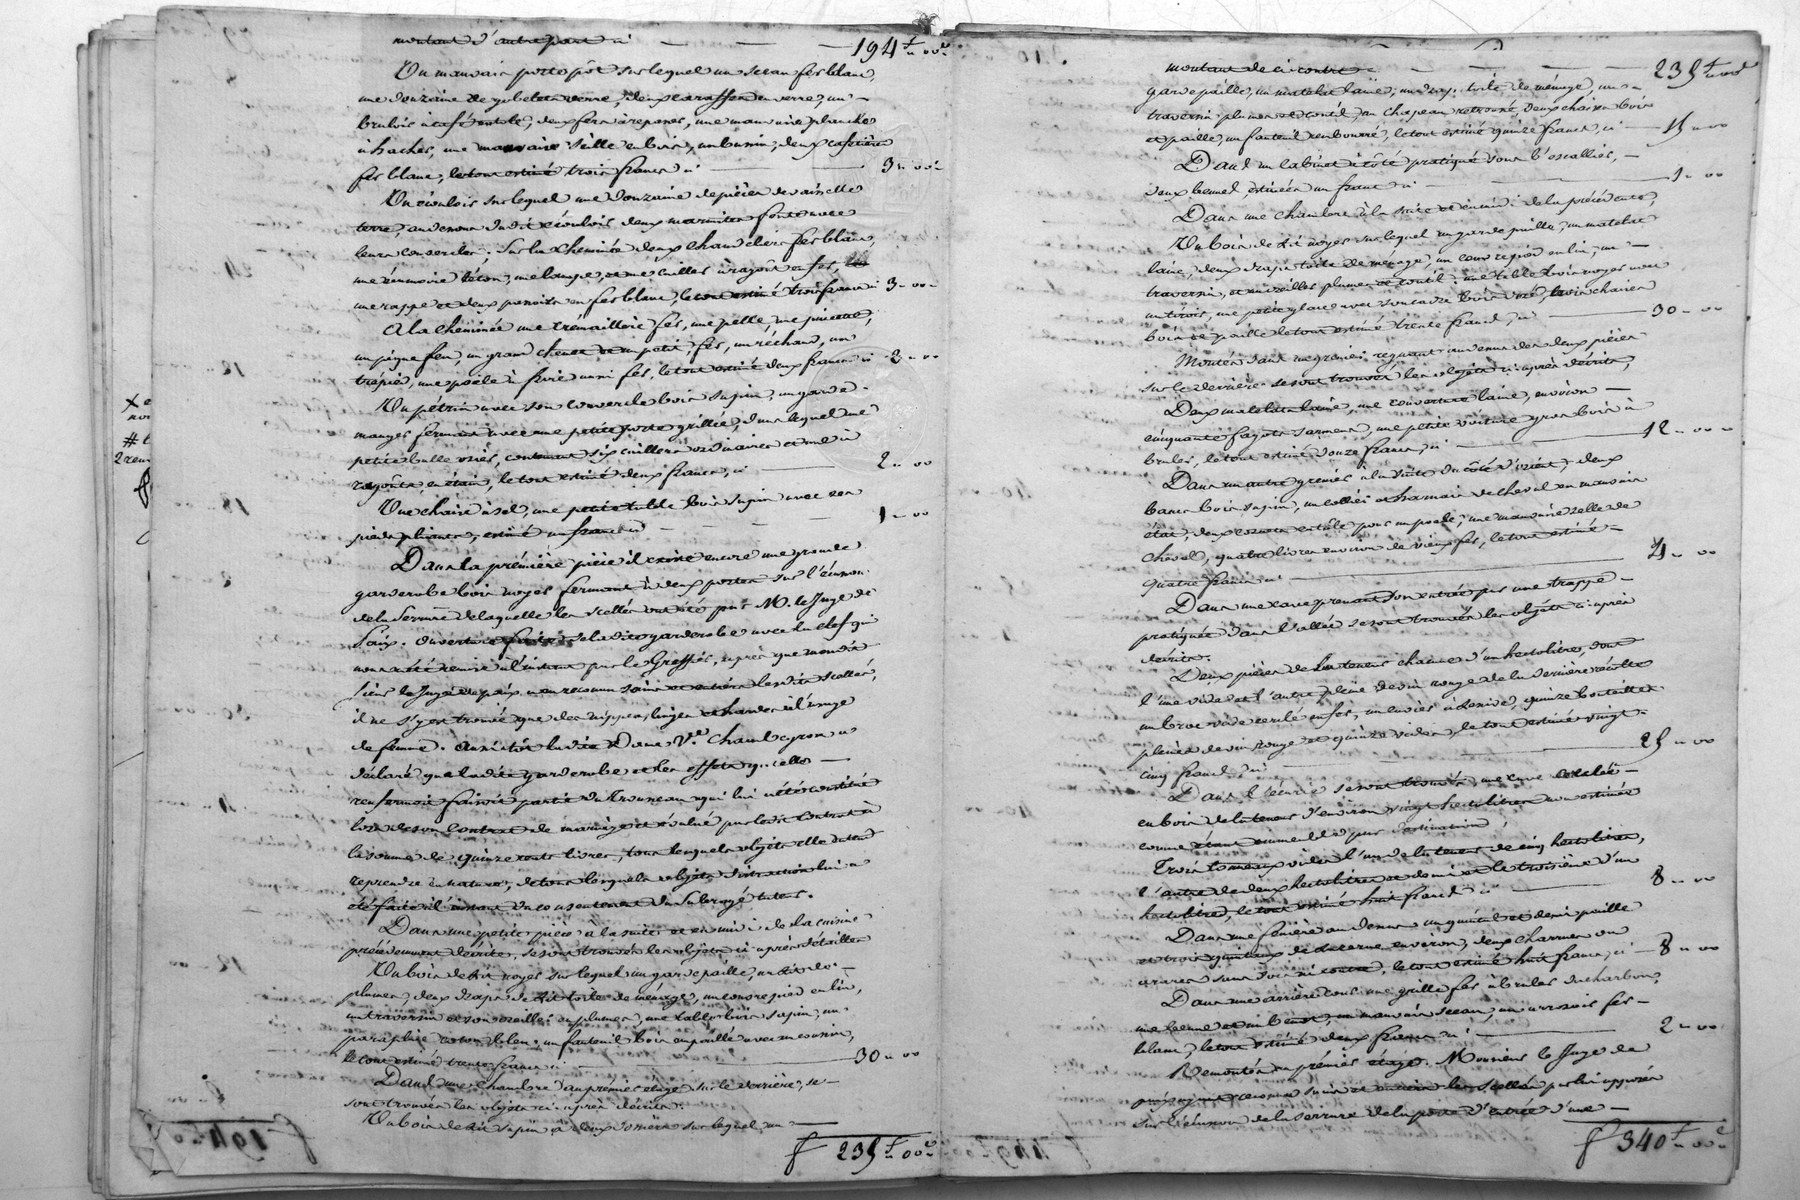 montant d'autre part ci 194f „ 00c
Un mauvais porte pôt sur lequel un seau fer blanc,
une douzaine de gobelets verre, deux caraffes en verre, un
brulois à café en tôle, deux fers à repasser, une mauvaise planche
à hacher, une mauvaise seille en bois, un bassin, deux cafetières
fer blanc, le tout estimé trois francs ci 3 „ 00
Un écoulois sur lequel une douzaine de pièces de vaisselle
terre, au dessous dudit écoulois deux marmites fonte avec
leurs couvercles; sur la cheminée deux chandeliers fer blanc,
une lampe, et une cuiller à ragoût en fer,
une rappe et deux passoirs en fer blanc, le tout estimé trois francs ci 3 „ 00
A la cheminée une crémaillère fer, une pelle, une pincette,
un pique feu, un grand chenet et un petit, fer, un réchaud, un
trépied, une poële à frire aussi fer, le tout estimé deux francs ci 2 „ 00
Un pétrin avec son couvercle bois sapin, un garde
manger fermant avec une petite porte grillée, dans lequel une
petite bulle osier, contenant six cuillers ordinaires et une à
ragoûts, en étain, le tout estimé deux francs, ci 2 „ 00
Une chaire à sel, une petite table bois sapin avec ses
pieds pliants, estimé un franc ci 1 „ 00
Dans la première pièce il existe encore une grande
garderobe bois noyer fermant à deux portes sur l'écusson
de la serrure de laquelle les scellés ont été mis par M. le Juge de
Paix. Ouverture faite de la dite garderobe avec la clef qui
nous a été remise à l'instant par le Greffier, après que mondit
sieur le Juge de paix a eu reconnu sains et entiers lesdits scellés,
il ne s'y est trouvé que des nippes, linges et hardes à l'usage
de femme. Aussitôt ladite Dame Ve. Chambeyron a
déclaré que ladite garderobe et les effets qu'elle
renfermoit faisoit partie du trousseau qui lui a été constitué
lors de son contrat de mariage et évalué par ledit contrat à
la somme de quinze cents livres, tous lesquels objets elle entend
reprendre en nature, de tous lesquels objets distraction lui a
été faite à l'instant du consentement du subrogé tuteur.
Dans une petite pièce à la suite et en midi de la cuisine
précédemment décrite, se sont trouvés les objets ci après détaillés
Un bois de lit noyer sur lequel un garde paille, un lit de
plumes, deux draps de lit toile de ménage, un couvre pied en lin,
un traversin et son oreiller en plumes, une table bois sapin, un
parapluie coton bleu, un fauteuil bois en paille avec un coussin,
le tout estimé trente francs ci 30 „ 00
Dans une chambre au premier étage sur le derrière, se
sont trouvés les objets ci après décrits.
Un bois de lit sapin à deux dossiers sur lequel, un
f 235f „ 00c
montant de ci contre 235f „ 00c
garde paille, un matelas laine, un drap toile de ménage, un
traversin plumes et coutil, un chapeau retroussé, deux chaises bois
et paille, un fauteuil rembourré, le tout estimé quinze francs, ci 15 „ 00
Dans un cabinet à côté pratiqué sous l'escallier,
deux bennes, estimées un franc ci 1 „ 00
Dans une chambre à la suite et en midi de la précédente,
Un bois de lit noyer sur lequel un garde paille, un matelas
laine, deux draps toile de ménage, un couvre pied en lin, un
traversin, et un oreiller plumes et coutil; une table bois noyer avec
un tiroir, une petite glace avec son cadre bois uni, trois chaises
bois et paille le tout estimé trente francs, ci 30 „ 00
Montés dans un grenier régnant au dessus des deux pièces
sur le derrière se sont trouvés les objets ci après décrits,
Deux matelats laine, une couverture laine, environ
cinquante fagots sarments, une petite voiture gros bois à
bruler, le tout estimé douze francs, ci 12 „ 00
Dans un autre grenier à la suite du côté d'orient; deux
bancs bois sapin, un collier et harnais de cheval en mauvais
état, deux cornets en tôle pour un poële, une mauvaise selle de
cheval, quatre livres environ de vieux fer, le tout estimé
quatre francs ci 4 „ 00
Dans une cave prenant son entrée par une trappe
pratiquée dans l'allée se sont trouvés les objets ci après
décrits.
Deux pièces de la teneur chacune d'un hectolitre, dont
l'une vide et l'autre pleine de vin rouge de la dernière récolte
un broc vide cerclé en fer, un cuvier à lessive, quinze bouteilles
pleines de vin rouge et quinze vides, le tout estimé vingt
cinq francs ci 25 „ 00
Dans l'écurie se sont trouvés, une cuve cerclée
en bois de la teneur d'environ vingt hectolitres non estimée
comme étant immeuble par destination,
Trois tonneaux vides l'un de la teneur de cinq hectolitres,
l'autre de deux hectolitres et demi et le troisième d'un
hectolitre, le tout estimé huit francs ci 8 „ 00
Dans une fenière au dessus un quintal et demi paille
et trois quintaux de luzerne environ, deux charrues ou
araires sans soc ni coutre, le tout estimé huit francs, ci 8 „ 00
Dans une arrière cour une grille fer à bruler du charbon,
une benne et un benot, un mauvais seau, un arrosoir fer
blanc, le tout estimé deux francs ci 2 „ 00
Remontés au premier étage. Monsieur le Juge de
paix ayant reconnu sains et entiers les scellés par lui apposés
sur l'écusson de la serrure de la porte d'entrée d'une
f 340f „ 00c